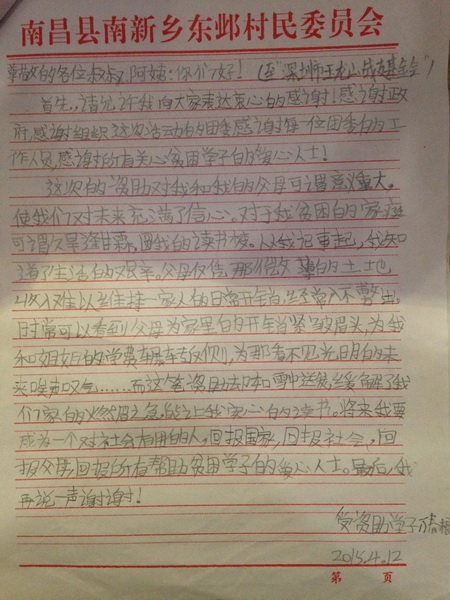 南昌县南新乡东邺村民委员会
尊敬的各位叔叔,阿姨:你们好!
首先,请允许我向大家表达衷心的感谢!感谢政
府,感谢组织这次活动的团委,感谢每一位团委的工
作人员,感谢所有关心贫困学子的爱心人士!
这次的资助对我和我的父母可谓意义重大。
使我们对未来充满了信心。对于我贫困的家庭
可谓久旱逢甘霖,圆我的读书梦。从我记事起,我知
道了生活的艰辛,父母仅靠那
收入难以维持一家人的日常开销,经常入不敷出,
时常可以看到父母为家里的开销紧皱眉头,为我
和姐姐的学费辗转反侧,为那看不见光明的未
来唉声叹气……而这笔资助却如雪中送炭,缓解了我
们家的燃眉之急,能让我安心的读书。将来我要
成为一个对社会有用的人,回报国家,回报社会,回
报父母,回报所有帮助贫困学子的爱心人士。最后,我
再说一声谢谢!
受资助学子
2015.4.12
第 页